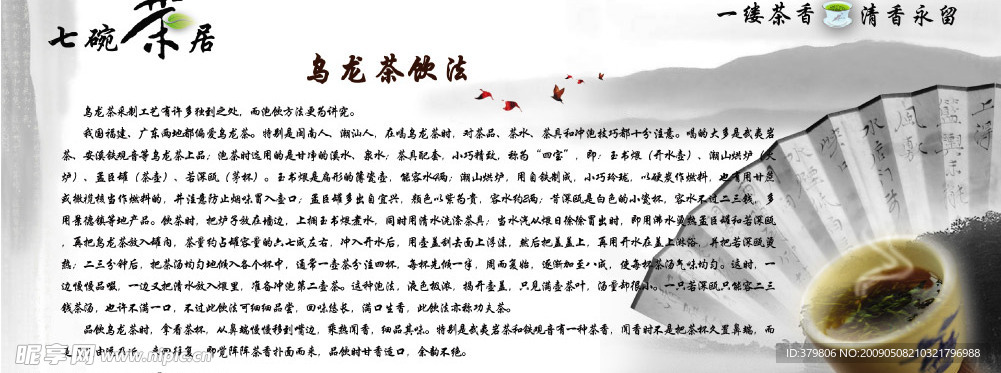 七碗茶居
一缕茶香 清香永留
乌龙茶饮法
乌龙茶采制工艺有许多独到之处，而泡饮方法更为讲究。
我国福建、广东两地都偏爱乌龙茶。特别是闽南人、潮汕人，在喝乌龙茶时，对茶品、茶水、茶具和冲泡技巧都十分注意。喝的大多是武夷岩
茶、安溪铁观音等乌龙茶上品；泡茶时选用的是甘净的溪水、泉水；茶具配套，小巧精致，称为“四宝”，即：玉书煨（开水壶）、潮汕烘炉（火
炉）、孟臣罐（茶壶）、若深瓯（茶杯）。玉书煨是扁形的薄瓷壶，能容水4两；潮汕烘炉，用白铁制成，小巧玲珑，以硬炭作燃料，也有用甘蔗
或橄榄核当作燃料的，并注意防止烟味冒入壶口；孟臣罐多出自宜兴，颜色以紫为贵，容水约2两；若深瓯是白色的小瓷杯，容水不过二三钱，多
用景德镇等地产品。饮茶时，把炉子放在墙边，上搁玉书煨煮水，同时用清水洗涤茶具；当水汽从煨口徐徐冒出时，即用沸水烫热孟臣罐和若深瓯
，再把乌龙茶放入罐内，茶量约占罐容量的六七成左右，冲入开水后，用壶盖刮去面上浮沫，然后把盖盖上，再用开水在盖上淋浴，并把若深瓯烫
热；二三分钟后，把茶汤均匀地倾入各个杯中，通常一壶茶分注四杯，每杯先倾一半，周而复始，逐渐加至八成，使每杯茶汤气味均匀。这时，一
边慢慢品啜，一边又把清水放入煨里，准备冲泡第二壶茶。这种泡法，液色极浓，揭开壶盖，只见满壶茶叶，汤量却很小。一只若深瓯只能容二三
钱茶汤，也许不满一口，不过此饮法可细细品尝，回味悠长，满口生香，此饮法亦称功夫茶。
品饮乌龙茶时，拿着茶杯，从鼻端慢慢移到嘴边，乘热闻香，细品其味。特别是武夷岩茶和铁观音有一种茶香，闻香时不是把茶杯久置鼻端，而
即觉阵阵茶香扑面而来，品饮时甘香适口，余韵不绝。
昵享网 www.nipic.cn
ID:379806 NO:20090508210321796988